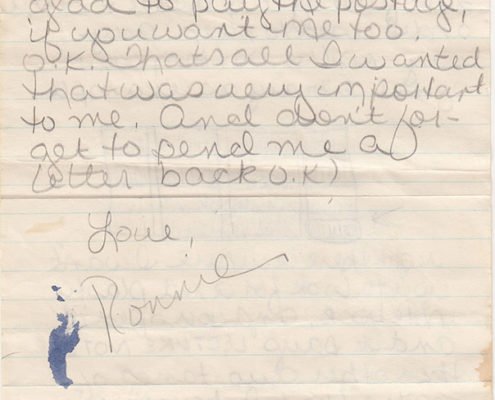 glad to pay the postage,
if you want me too.
O.K. Thats all I wanted
that was very important
to me. And don't for-
get to send me a
letter back O.K)
Love,
Ronnie